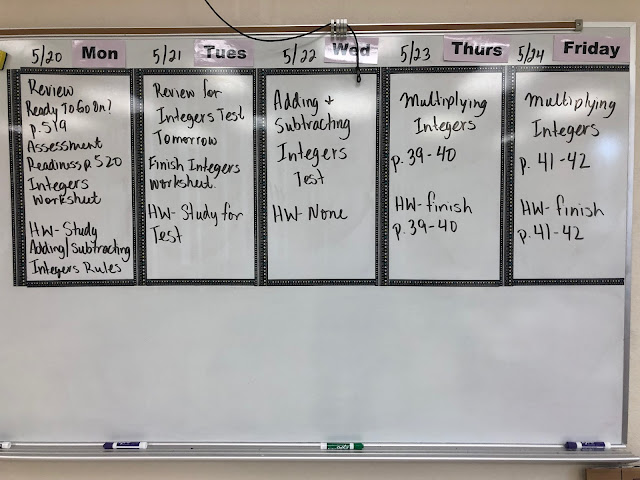 5/20 Mon
Review
Ready To Go On?
p.519
Assessment
Readinuss p.520
Integers
Worksheet
HW- Study
Adding/Subtracting
Integers Rules
5/21 Tues
Review for
Integers Test
Tomorrow
Finish Integers
Worksheet.
HW- Study for
Test
5/22 Wed
Adding +
Subtracting
Integers
Test
HW- None
5/23 Thurs
Multiplying
Integers
p. 39-40
HW- finish
p. 39-40
5/24 Friday
Multiplying
Integers
p. 41-42
HW- finish
p. 41-42